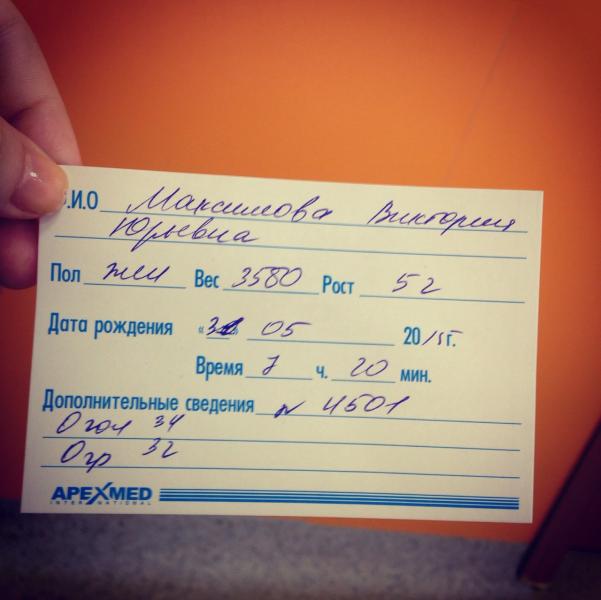 .И.О Максимова Виктория
Юрьевна
Пол жен Вес 3580 Рост 52
Дата рождения «31» 05 2015г.
Время 7 ч. 20 мин.
Дополнительные сведения N 4501
Огол 34
Огр 32
APEXMED
INTERNATIONAL